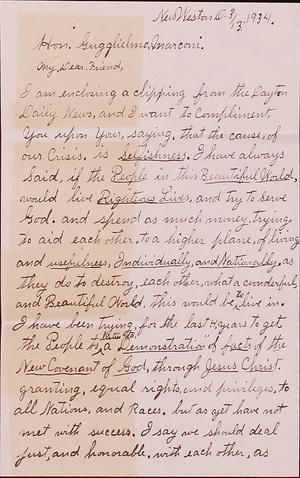 New Weston O. 3/13. 1934.
Hon. Gugglielmo, Marconi.
My, Dear, Friend,
I am enclosing a clipping from the Dayton
Daily News, and I want to Compliment,
You upon Your, saying, that the cause, of
our Crisis, is selfishness. I have always
said, if the People in this Beautiful World,
would live Righteous Lives, and try to serve
God. and spend as much money, trying,
to aid each other, to a higher plane, of living
and usefulness, Individually, and Nationally, as
they do to destroy, each other, what a wonderful,
and Beautiful World, this would, be "live in.
I have been trying, for the last 4 years to get
the People to listen to "a Demonstration" of facts of the
New Covenant of God, through Jesus Christ.
granting, equal rights, and privileges, to
all Nations, and Races. but as yet have not
met with success. I say we should deal
just, and honorable, with each other, as